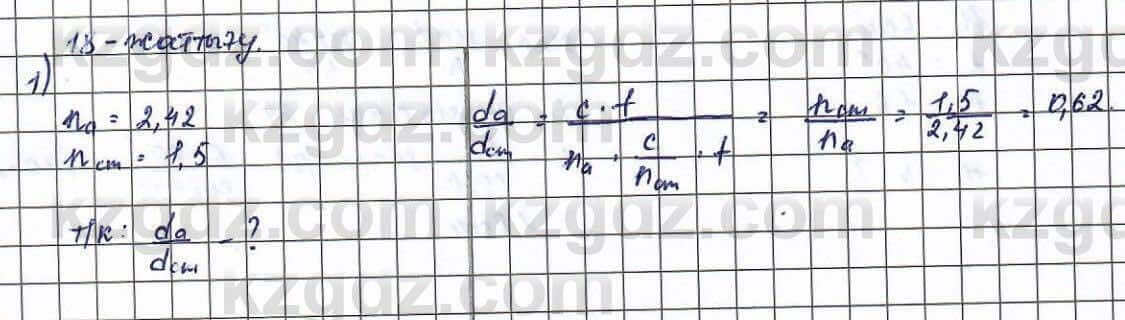 18-жаттығу.
1)
nа = 2,42
nст = 1,5
Т/к: dа/dст - ?
dа/dст = c·t / (nа · c/nст · t) = nст/nа = 1,5/2,42 = 0,62.
kzgdz.com kzgdz.com kzgdz
kzgdz.com kzgdz.com
kzgdz.com kzgdz.com kzgdz
kzgdz.com kzgdz.com